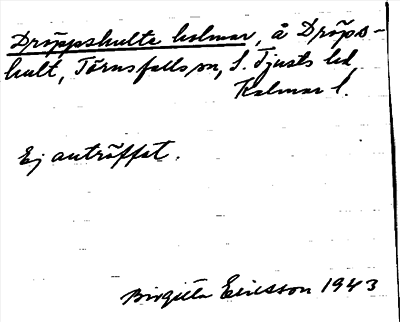 Dröppshulte holmar, å Dröps-
hult, Törnsfalls sn, S. Tjusts hd,
Kalmar l.
Ej anträffat.
Birgitta Ericsson 1943